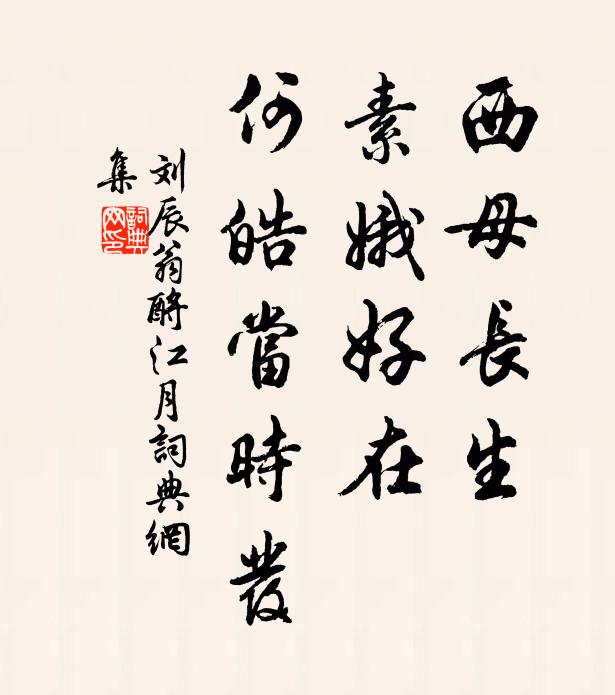 西母長生
素娥好在
何皓當時發
刘辰翁酹江月詞典網
集
詞典
网印